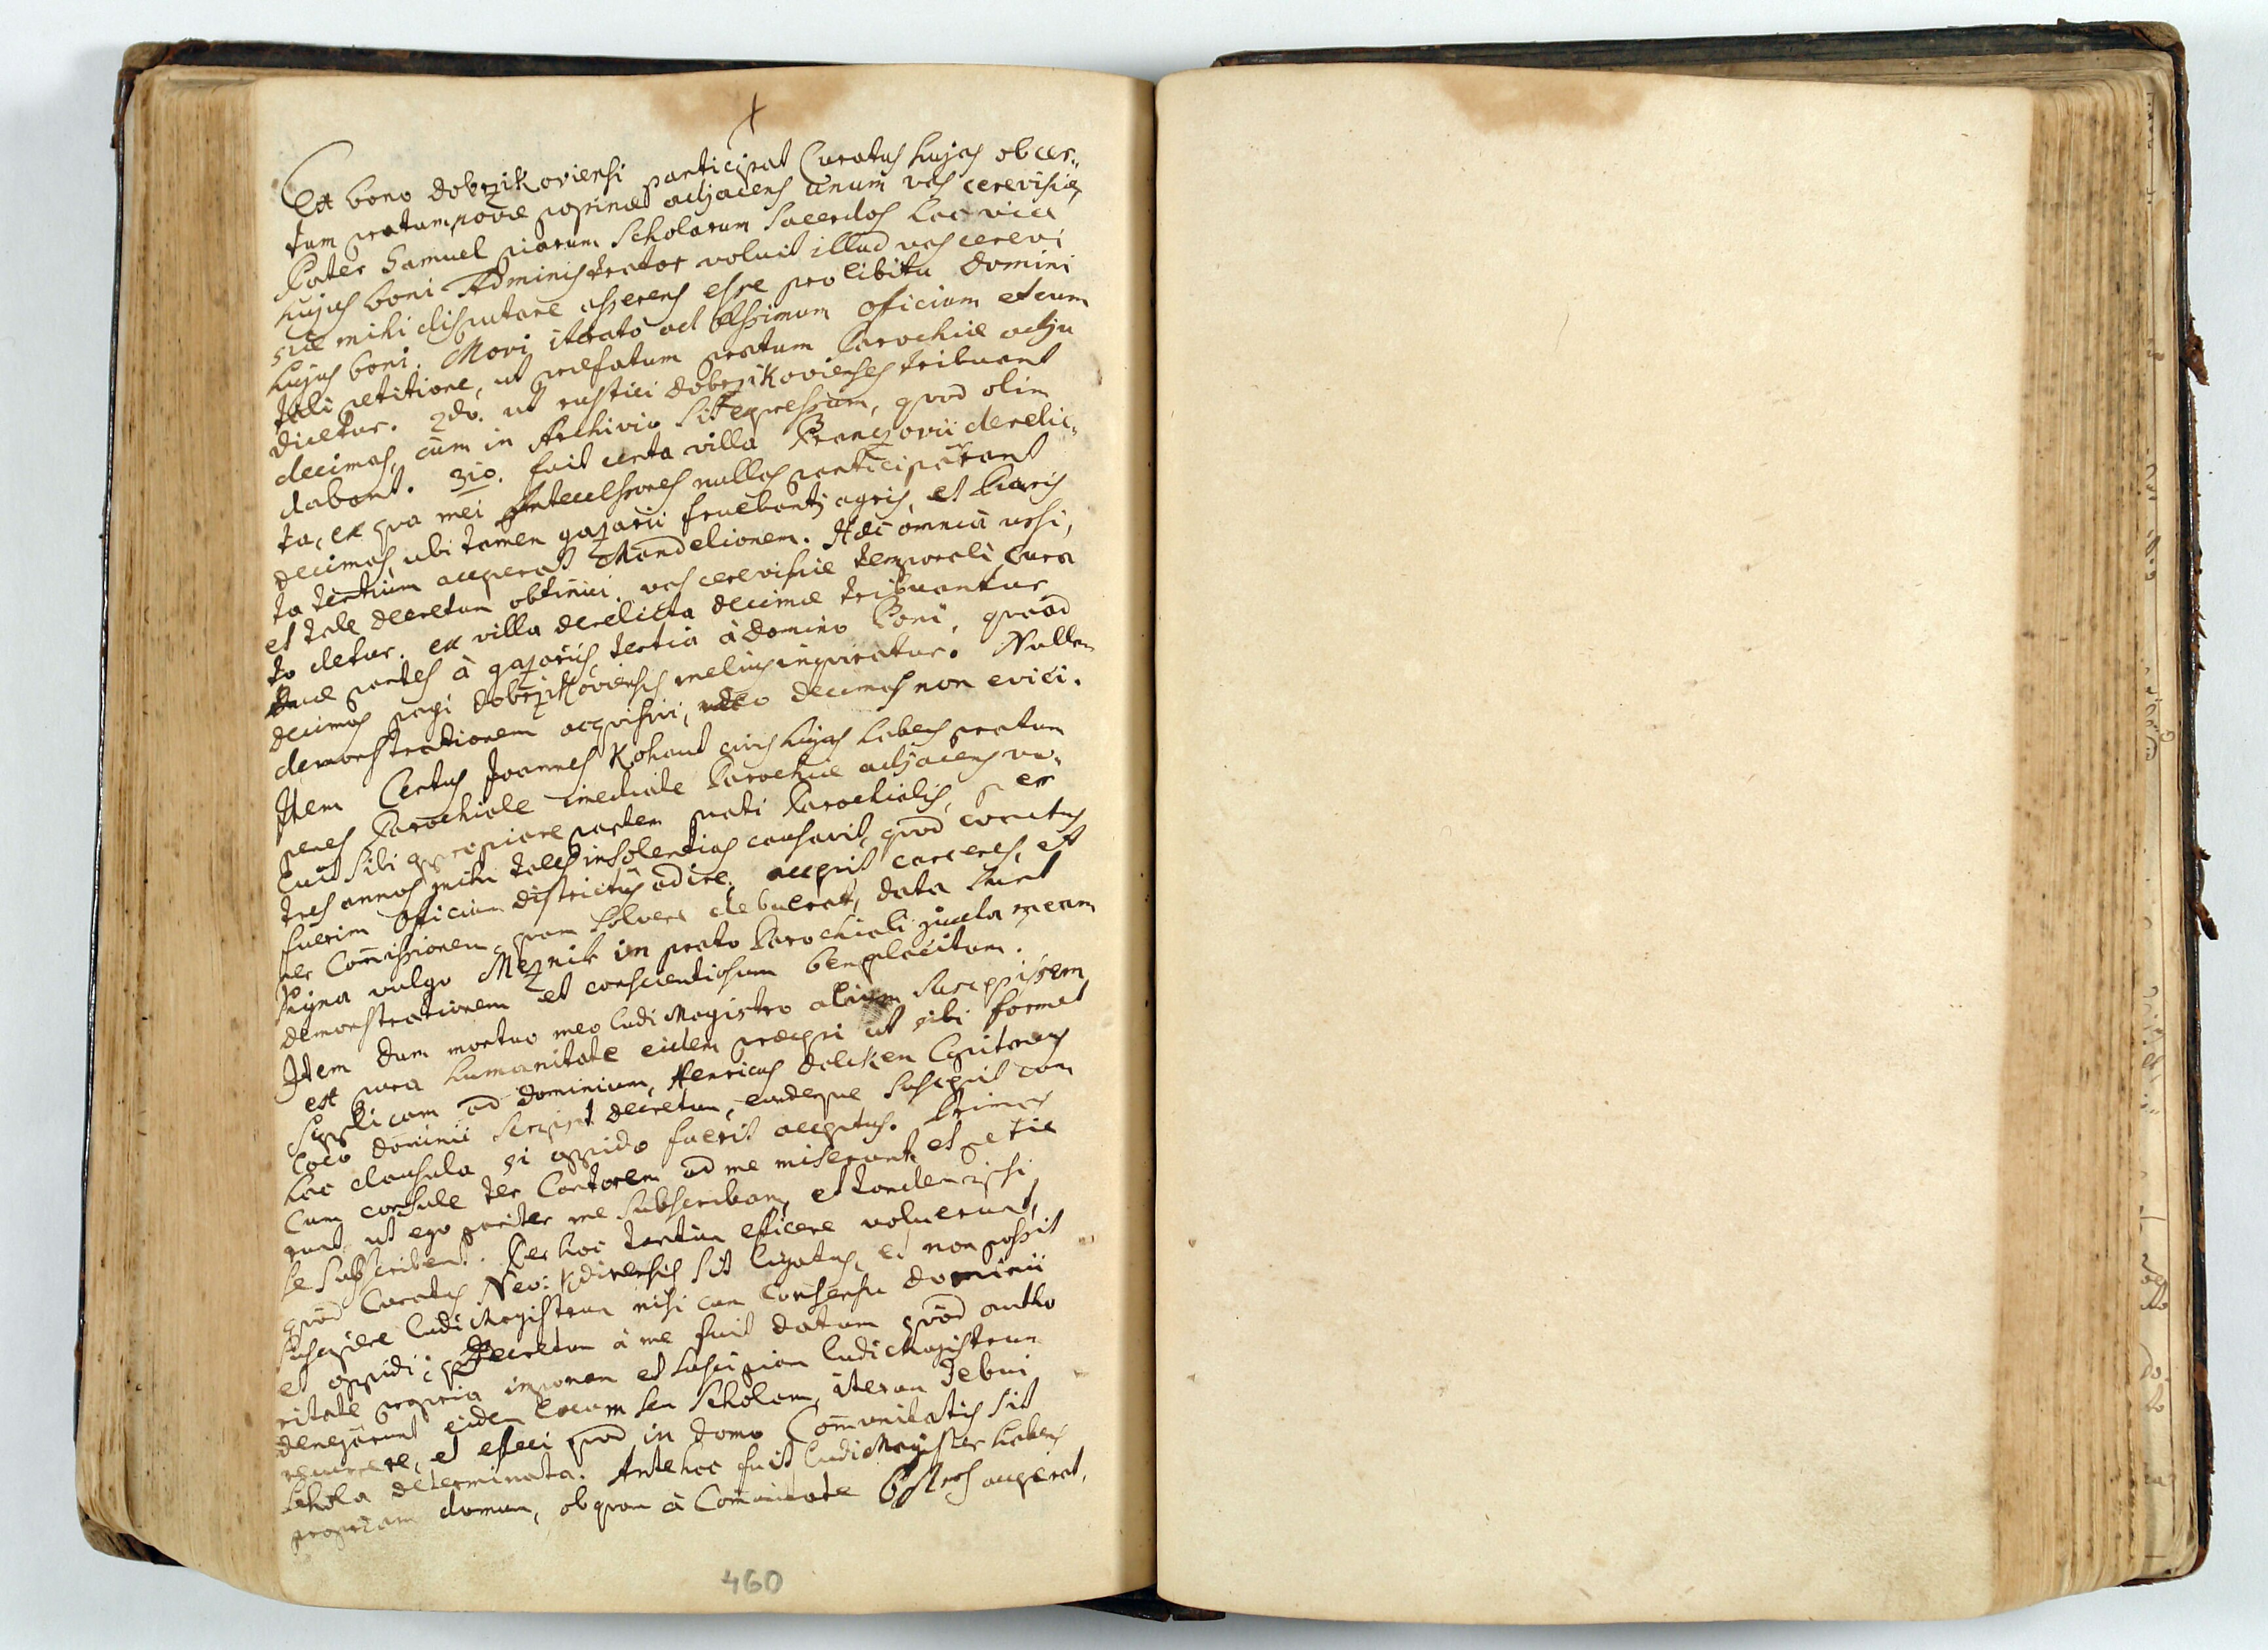 Ex bono Dobrzikoviensi participat Curatus hujas ob cer„
tum pratum novae popinae adjacens unum vas cerevisiae,
Pater Samuel piarum Scholarum Sacerdos hac vice
hujus boni Administrator voluit illud vas cerevi
siae mihi disputare asserens esse pro libitu Domini
hujus boni. Movi iterato ad officium et cum
tali petitione, ut praefatum pratum Parochiae adju
dicetur. 2do. ut rustici Dobrzikovienses tribuant
decimas, cum in Archivio sit expressum, quod olim
dabant. 3io. fuit certa villa derelic„
ta, ex qua mei Antecessores nullas participarunt
decimas, ubi tamen gazarii agris, et
to tertium acceperat Mandelionem. Haec omnia
et tale decretum obtinui. vas cerevisiae temporali Cura
to detur. ex villa derelicta decimae tribuantur
duae partes à gazariis, tertia à Domino Boni, quoad
decimas pagi Dobrzikoviensis melius inquiratur. Nullam
demonstrationem acquisivi, ideo decimas non evici.
Item Certus Joannes Kohaut civis hujas habens pratum
penes Parochiale imediate Parochiae adjacens vo„
luit sibi appropriare partem prati Parochialis, per
tres annos mihi tales insolentias causavit, quod coactus
fuerim Officium districtus adire. accepit carceres, et
per Commissionem quam solvere debuerat, data sunt
signa vulgo Mezník in prato Parochiali juxta meam
demonstrationem et conscientiosum beneplacitum.
Item Dum mortuo meo ludi Magistro alium suscepissem
ex pura humanitate eidem praecepi ut sibi formet
supplicam ad Dominium, Henricus
loco Dominii scripsit decretum, eundemque suscepit cum
hac clausula si oppido fuerit acceptus. Primas
cum consule ter Cantorem ad me miserunt et petie
runt, ut ego pariter me subscribam, et tandem ipsi
se subscribent. Per hoc tantum efficere voluerunt,
quod Curatus Neo: Kdinensis sit ligatus, et non possit
suscipere ludi Magistrum nisi cum consensu Dominii
et oppidi; Decretum à me fuit datum quod autho
ritate propria imponam et suscipiam ludi Magistrum
denegarunt eidem locum seu Scholam, iterum debui
recurrere, et effeci quod in domo Communitatis sit
Schola determinata. Antehac fuit ludi Magister habens
propriam domum, ob quam à Communitate acceperat.
460